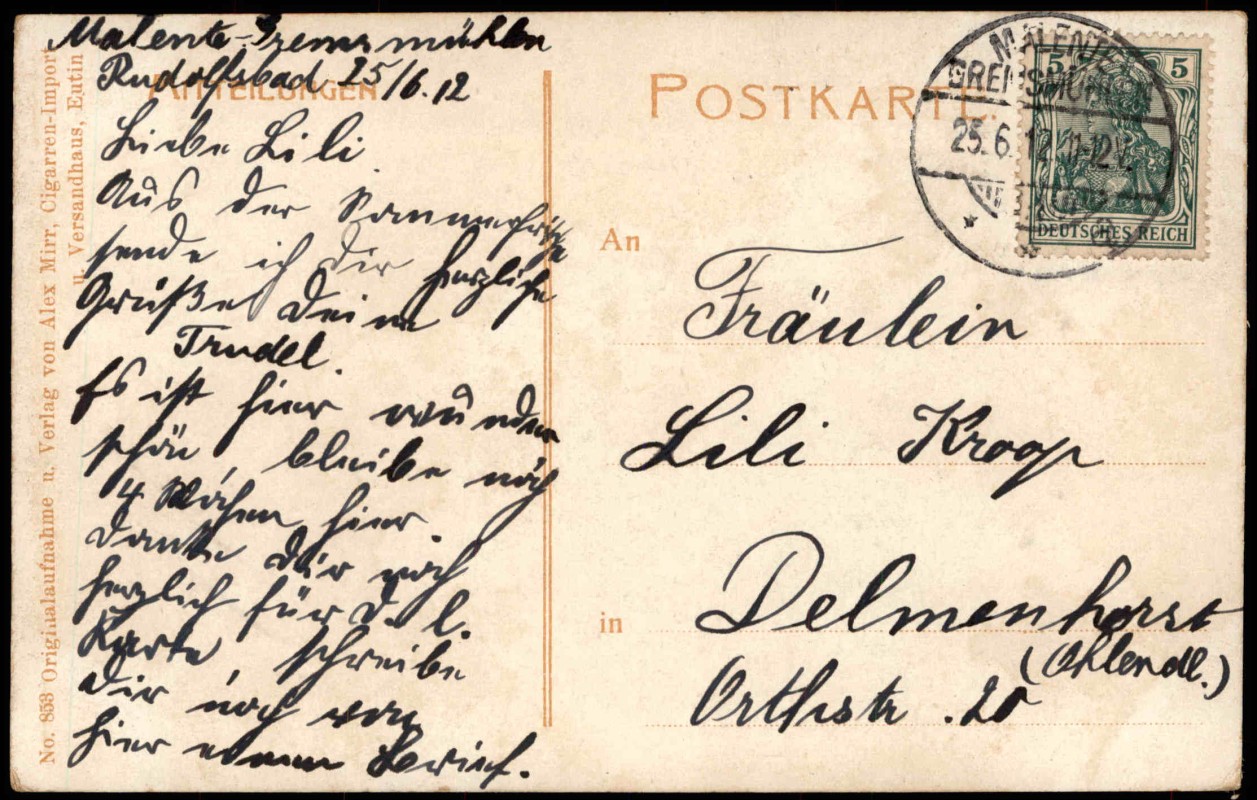 Malente-Gremsmühlen
Rudolfsbad 25/6.12
MITTEILUNGEN
Liebe Lili
Aus der Sommerfrische
sende ich dir herzliche
Grüße Deine
Trudel.
Es ist hier wunder
schön bleibe noch
4 Wochen hier.
Danke Dir noch
herzlich für d. l.
Karte, schreibe
Dir noch von
hier einen Brief.
No. 853 Originalaufnahme u. Verlag von Alex Mirr, Cigarren-Import
u. Versandhaus, Eutin
POSTKARTE.
MALENTE-
GREMSMÜHLEN
25.6.12.11-12V.
5 5
DEUTSCHES REICH
An
Fräulein
Lili Kroop
in
Delmenhorst
(Ohlendl.)
Orthstr. 20